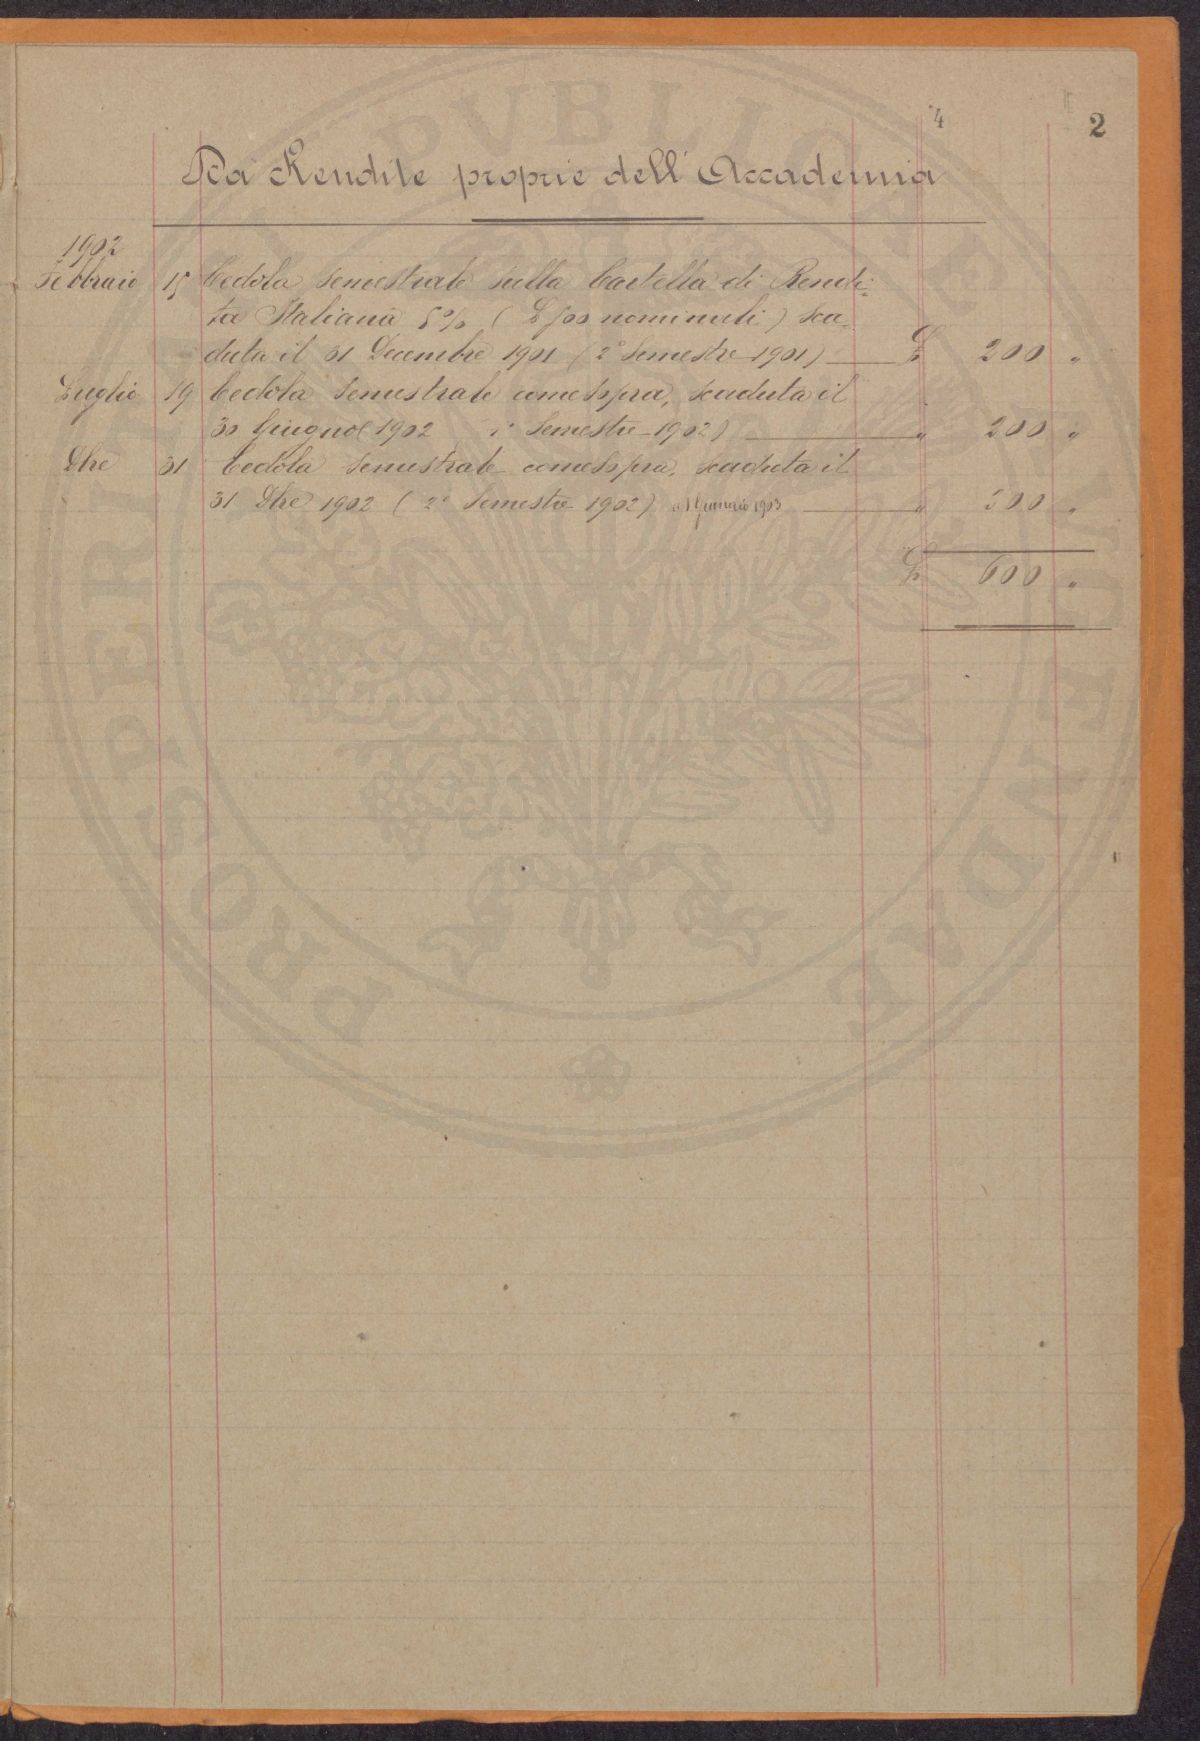 4
2
Da Rendite proprie dell'Accademia
1902
Febbraio 15 Cedola semestrale sulla Cartella di Rendi-
ta Italiana 5% ( L 500 nominali ) sca-
duta il 31 Decembre 1901 ( 2° Semestre 1901 ) L 200 "
Luglio 19 Cedola semestrale comesopra, scaduta il
30 Giugno ( 1902 1° Semestre 1902 ) " 200 "
Dbre 31 Cedola semestrale comesopra, scaduta il
31 Dbre 1902 ( 2° Semestre 1902 ) Gennaio 1903 " 200 "
L 600 "
PROSPERITATI PVBLICAE AVGENDAE